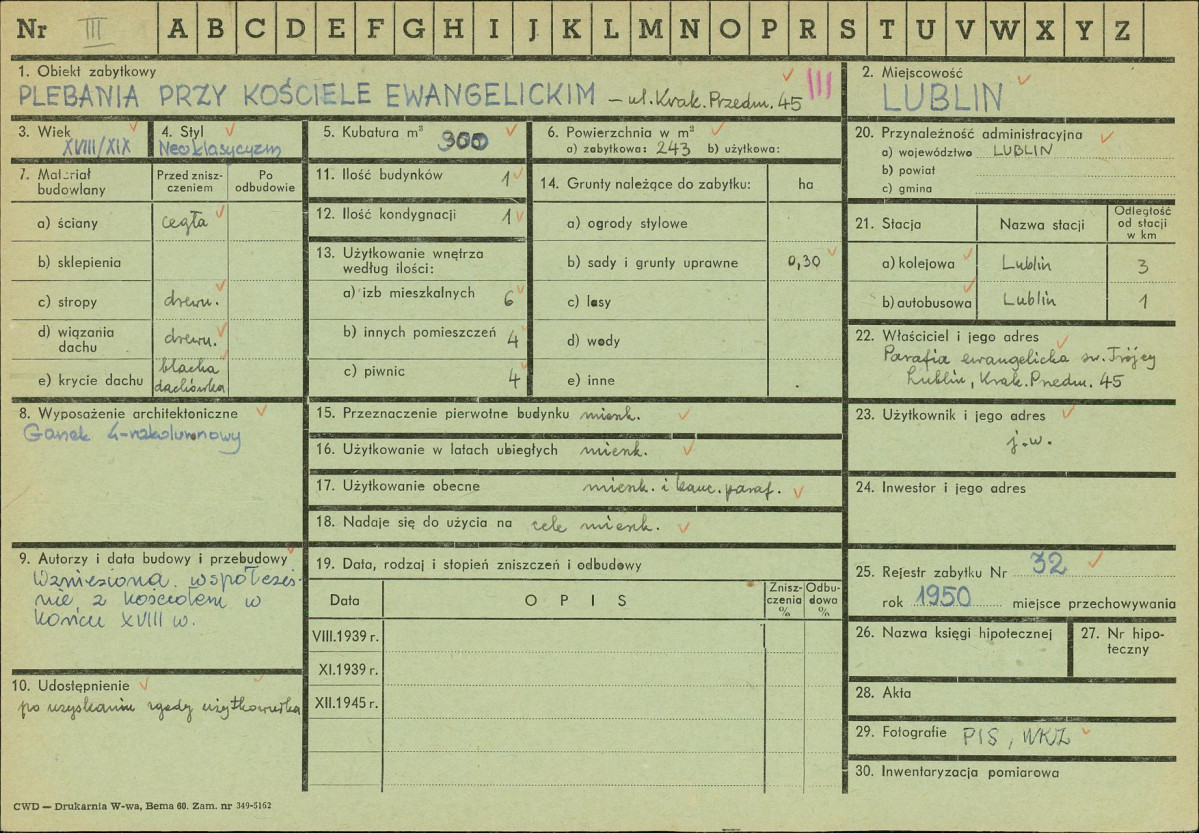 Nr III A B C D E F G H I J K L M N O P R S T U V W X Y Z
1. Obiekt zabytkowy
PLEBANIA PRZY KOŚCIELE EWANGELICKIM – ul. Krak. Przedm. 45 III
2. Miejscowość
LUBLIN
3. Wiek
XVIII/XIX
4. Styl
Neoklasycyzm
5. Kubatura m³
900
6. Powierzchnia w m²
a) zabytkowa: 243 b) użytkowa:
7. Materiał budowlany
Przed zniszczeniem
Po odbudowie
a) ściany cegła
b) sklepienia
c) stropy drewn.
d) wiązania dachu drewn.
e) krycie dachu blacha dachówka
8. Wyposażenie architektoniczne
Ganek 4-rokolumnowy
9. Autorzy i data budowy i przebudowy
Wzniesiona współcześ-
nie z kościołem w
końcu XVIII w.
10. Udostępnienie
po uzyskaniu zgody użytkownika
11. Ilość budynków 1
12. Ilość kondygnacji 1
13. Użytkowanie wnętrza według ilości:
a) izb mieszkalnych 6
b) innych pomieszczeń 4
c) piwnic 4
14. Grunty należące do zabytku: ha
a) ogrody stylowe
b) sady i grunty uprawne 0,30
c) lasy
d) wody
e) inne
15. Przeznaczenie pierwotne budynku mieszk.
16. Użytkowanie w latach ubiegłych mieszk.
17. Użytkowanie obecne mieszk. i kanc. paraf.
18. Nadaje się do użycia na cele mieszk.
19. Data, rodzaj i stopień zniszczeń i odbudowy
Data OPIS Zniszczenia % Odbudowa %
VIII.1939 r.
XI.1939 r.
XII.1945 r.
20. Przynależność administracyjna
a) województwo LUBLIN
b) powiat
c) gmina
21. Stacja Nazwa stacji Odległość od stacji w km
a) kolejowa Lublin 3
b) autobusowa Lublin 1
22. Właściciel i jego adres
Parafia ewangelicka św. Trójcy
Lublin, Krak. Przedm. 45
23. Użytkownik i jego adres
j.w.
24. Inwestor i jego adres
25. Rejestr zabytku Nr 32
rok 1950 miejsce przechowywania
26. Nazwa księgi hipotecznej
27. Nr hipoteczny
28. Akta
29. Fotografie PIS, WKZ
30. Inwentaryzacja pomiarowa
CWD — Drukarnia W-wa, Bema 60. Zam. nr 349-5162